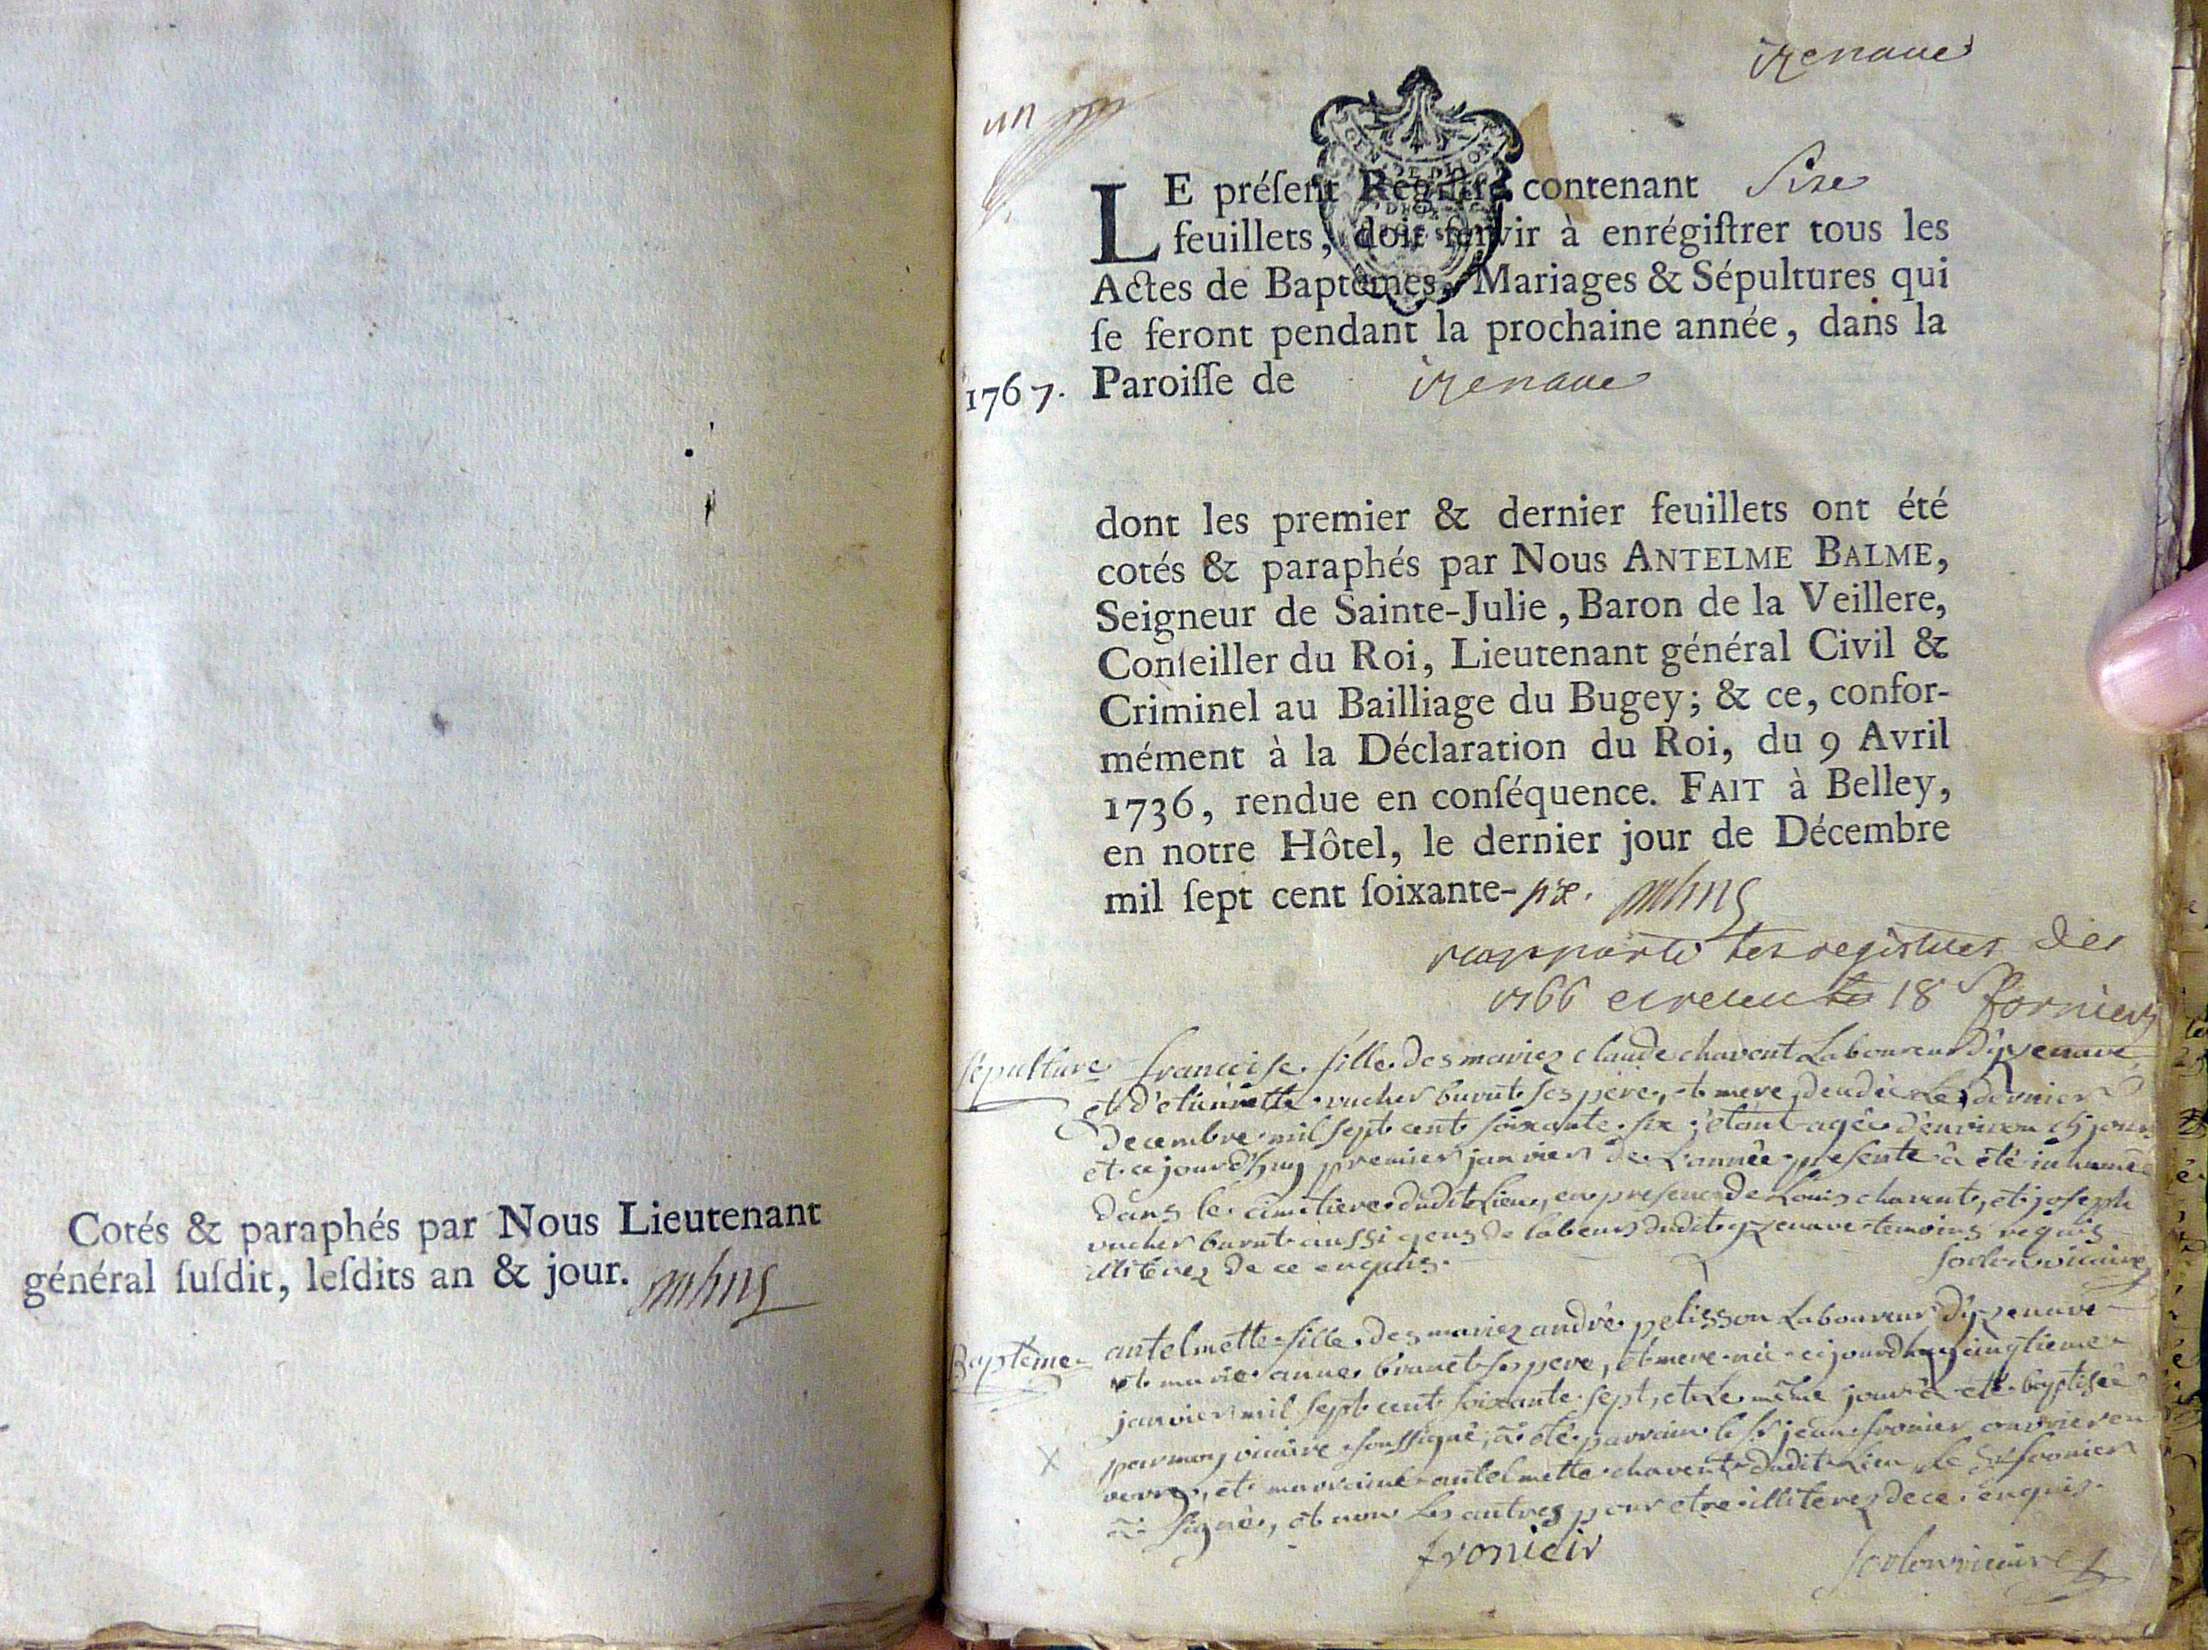 Cotés & paraphés par Nous Lieutenant
général ſuſdit, leſdits an & jour.
izenave
un
LE préſent Regiſtre contenant Sixe
feuillets, doit ſervir à enrégiſtrer tous les
Actes de Baptêmes, Mariages & Sépultures qui
ſe feront pendant la prochaine année, dans la
1767. Paroiſſe de izenave
dont les premier & dernier feuillets ont été
cotés & paraphés par Nous ANTELME BALME,
Seigneur de Sainte-Julie, Baron de la Veillere,
Conſeiller du Roi, Lieutenant général Civil &
Criminel au Bailliage du Bugey; & ce, confor-
mément à la Déclaration du Roi, du 9 Avril
1736, rendue en conſéquence. FAIT à Belley,
en notre Hôtel, le dernier jour de Décembre
mil ſept cent ſoixante-six.
rapporté les registres de
1766 18
sépulture francoise fille des mariez claude chavent Laboureur d'yzenave
et d'etiennette vucher burut ses pere, et mere, decedée Le dernier
decembre mil sept cent soixante six, étant agée d'environ jours
et ce jourd'huy premier janvier de L'année presente à été inhumée
dans le cimetiere dudit Lieu, en presence de Louis chavent, et joseph
vucher burut aussi gens de labeur dudit yzenave temoins requis
illiterez de ce enquis. vicaire
Baptême antelmette fille des mariez andré pelisson Laboureur d'yzenave
et marie anne brunet ses pere, et mere née cejourd'huy cinqtieme
janvier mil sept cent soixante sept, et Le même jour à été baptisée
par moy vicaire soussigné, à été parrain le sr jean fronier ouvrier en
verre, et marraine antelmette chavent dudit Lieu, Le sr fronier
à signé, et non Les autres pour etre illiterez de ce enquis.
fronieir vicaire